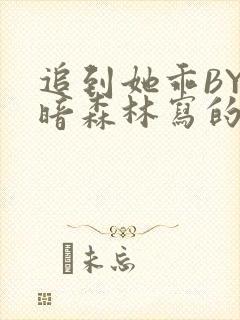 追到她乖BY
暗森林寫的
未忘